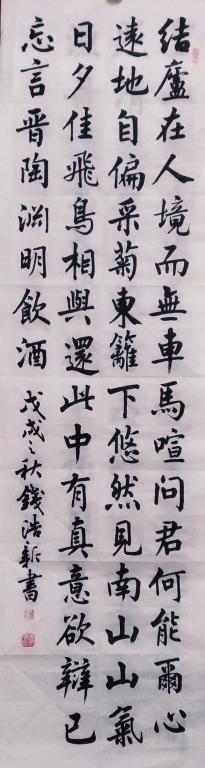 結廬在人境而無車馬喧問君何能爾心
遠地自偏采菊東籬下悠然見南山山氣
日夕佳飛鳥相與還此中有真意欲辯已
忘言晉陶渊明飲酒
戊戌之秋錢浩新書